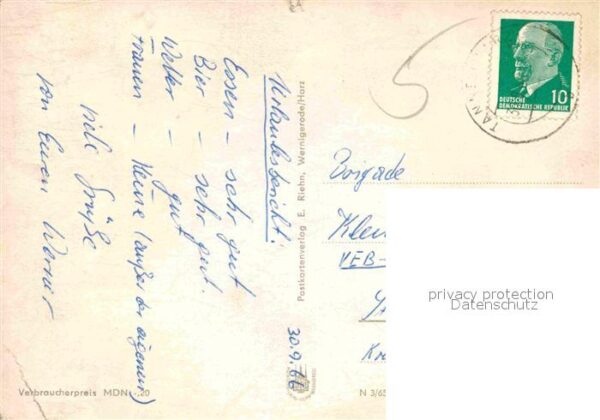 Urlaubsbericht!
Essen - sehr gut
Bier - sehr gut.
Wetter - gut
Frauen - keine (außer der eigenen)
Viele Grüße
von Eurem Werner
30.9.66
Postkartenverlag E. Riehn, Wernigerode/Harz
Verbraucherpreis MDN -.20
5
DEUTSCHE
DEMOKRATISCHE REPUBLIK
10
TAN
Brigade
VEB-
N 3/65
privacy protection
Datenschutz